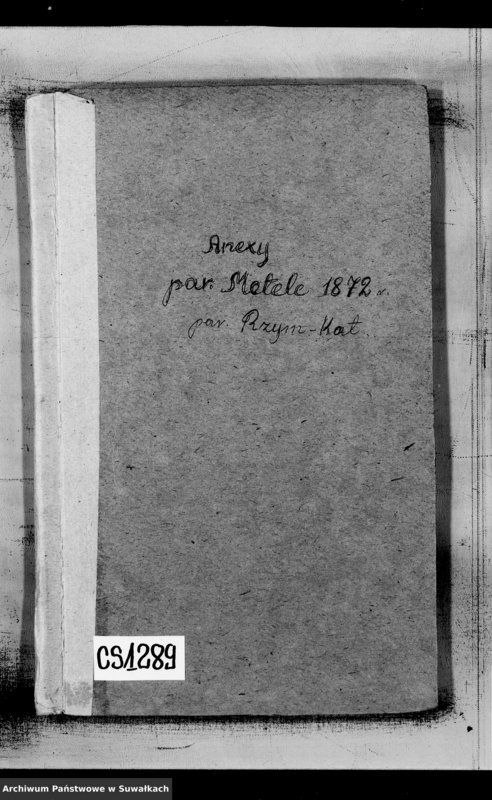 Anexy
par. Metele 1872 r.
par. Rzym-Kat.
CS1289
Archiwum Państwowe w Suwałkach